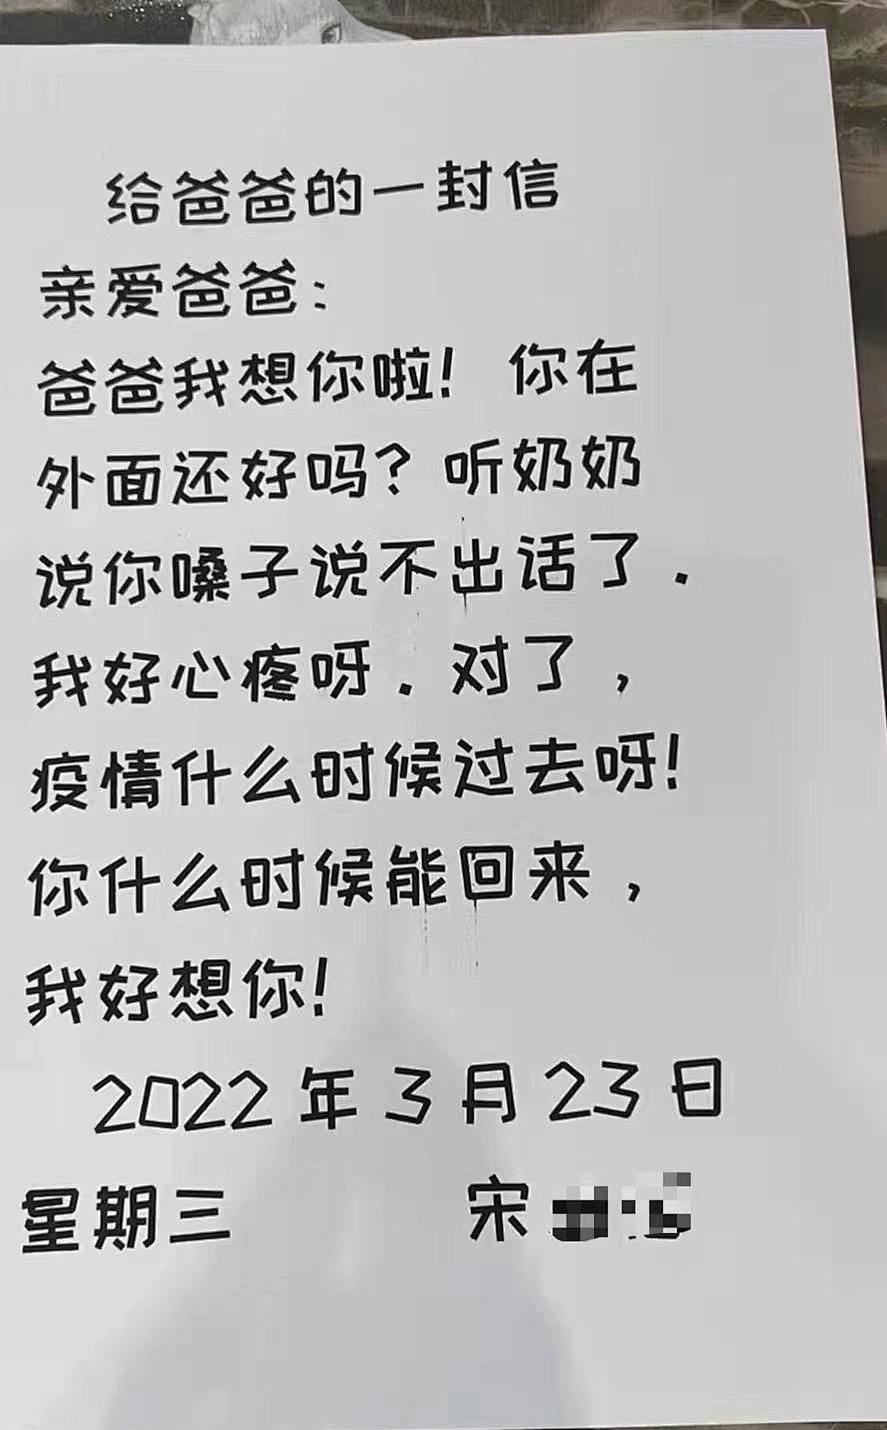 给爸爸的一封信
亲爱爸爸：
爸爸我想你啦！你在
外面还好吗？听奶奶
说你嗓子说不出话了．
我好心疼呀．对了，
疫情什么时候过去呀！
你什么时候能回来，
我好想你！
2022年3月23日
星期三 宋